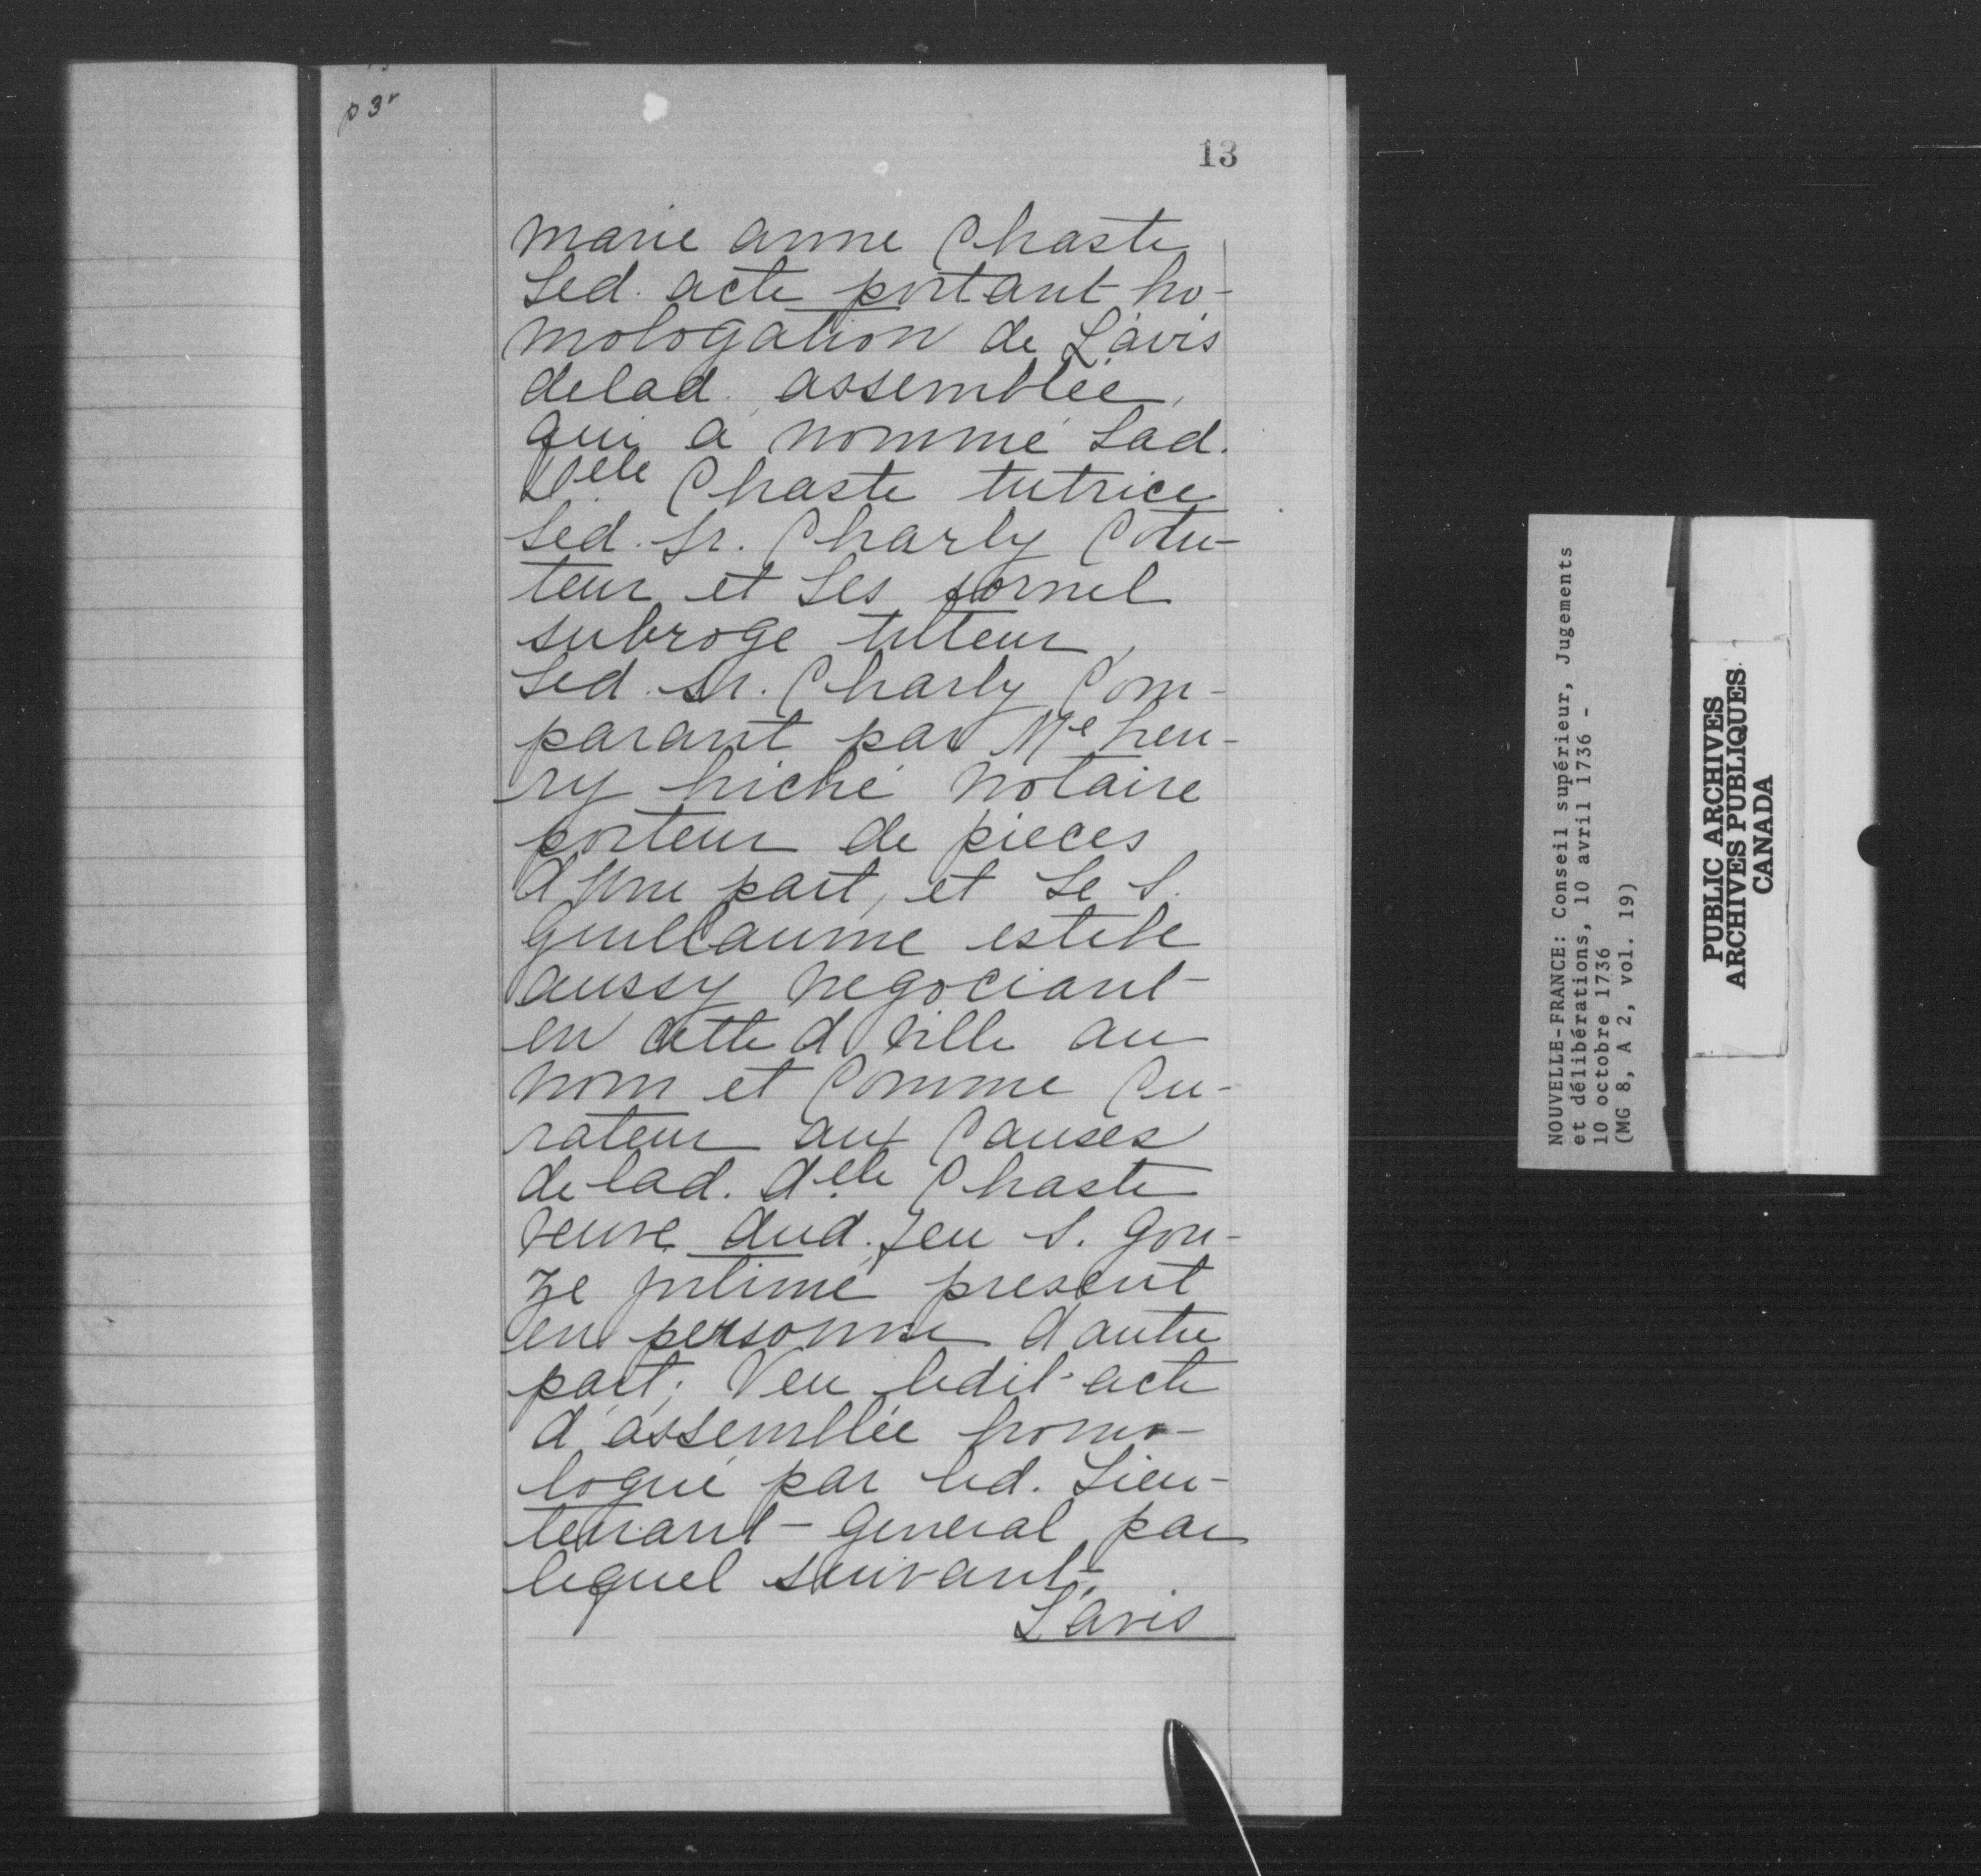 p 3r
13
marie anne Chaste
Led. acte portant ho-
mologation de L'avis
delad. assemblée,
qui a nommé Lad.
Delle Chaste tutrice
Led. Sr. Charly Cotu-
teur et Les fornel
subroge tuteur,
Led. Sr. Charly Com-
parant par Me hen-
ry hiché notaire
porteur de pieces
d'Une part, et Le S.
Guillaume estebe
aussy negociant
en cette d ville au
nom et Comme Cu-
rateur aux Causes
de lad. delle Chaste
veuve dud. feu S. Gou-
ze jntimé present
en personne d'autre
part; Veu ledit acte
d'assemblée homo-
logué par led. Lieu-
tenant-general par
lequel suivant
L'avis
NOUVELLE-FRANCE: Conseil supérieur, Jugements
et délibérations, 10 avril 1736 -
10 octobre 1736
(MG 8, A 2, vol. 19)
PUBLIC ARCHIVES
ARCHIVES PUBLIQUES
CANADA